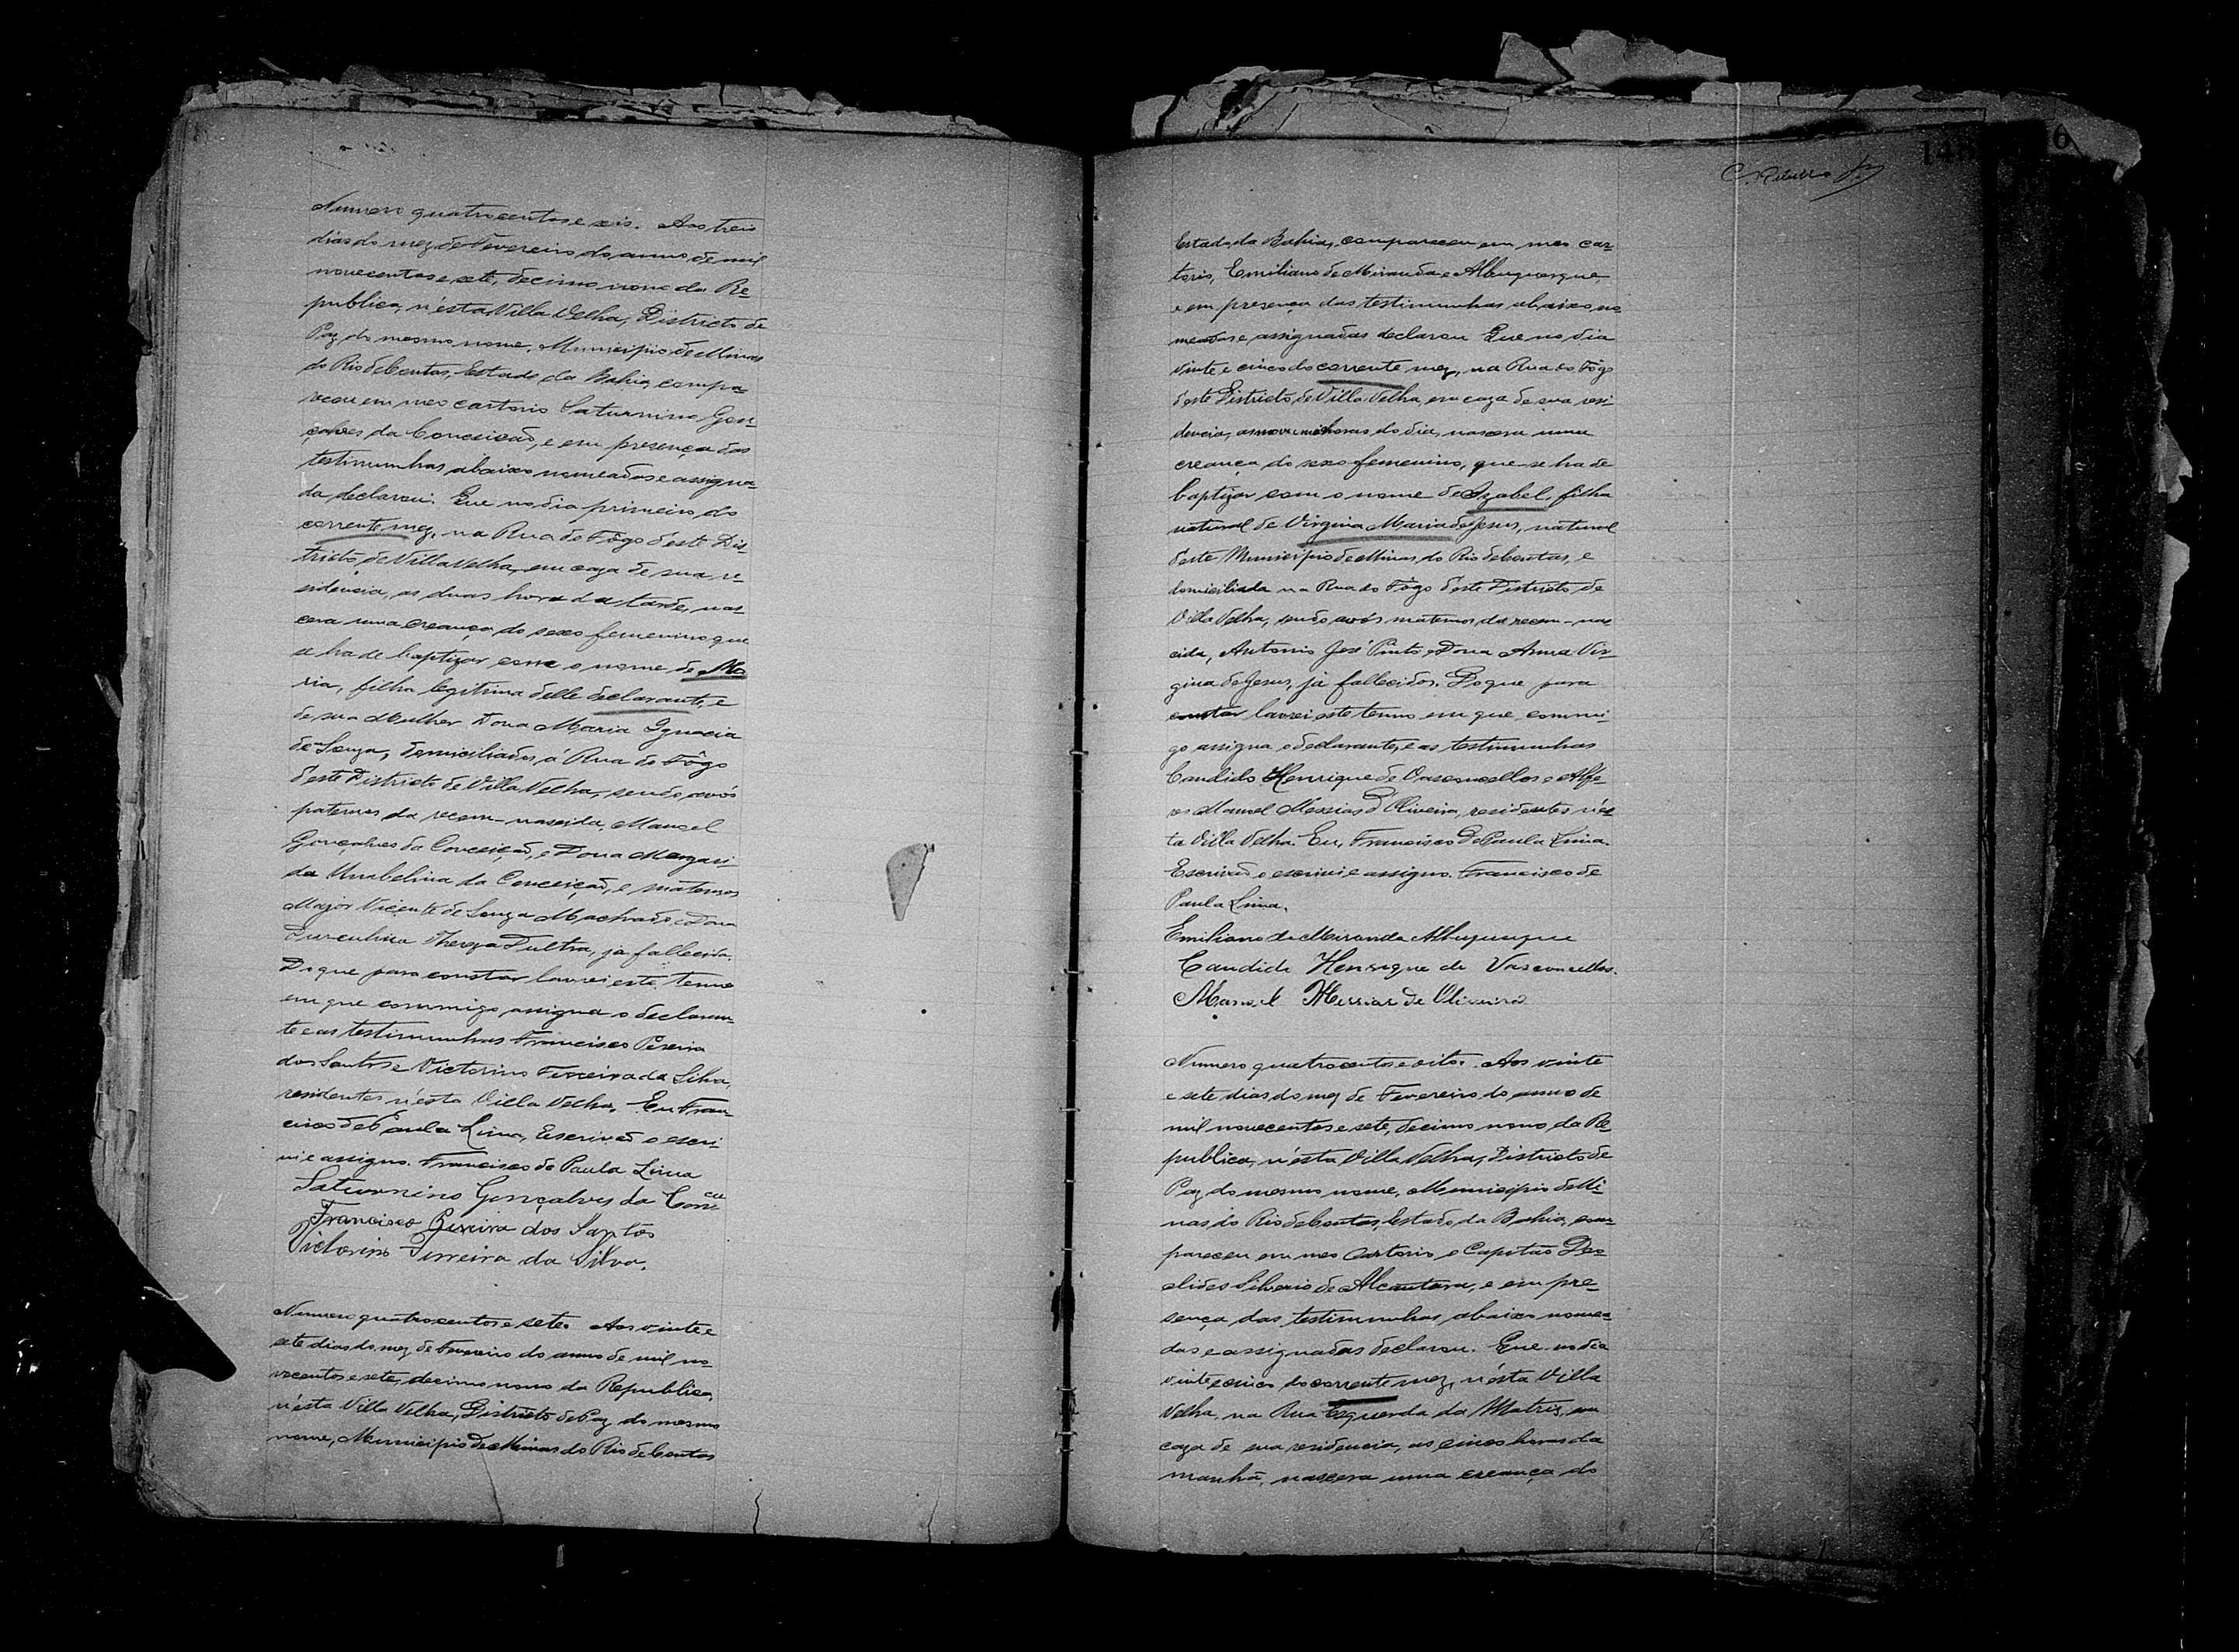 Numero quatrocentos e seis. Aos tres
dias do mez de Fevereiro do anno de mil
novecentos e sete, decimo nono da Re-
publica, n'ésta Villa Velha, Districto de
Paz do mesmo nome, Municipio de Minas
do Rio de Contas, Estado da Bahia, compa-
receu em meo cartorio Saturnino Gon-
çalves da Conceicaõ, e em presença das
testimunhas abaixo nomeadas e assigna-
da declarou: Que no dia primeiro do
corrente mez, na Rua do Fôgo d'este Dis-
tricto de Villa Velha, em caza de sua re-
sidencia, as duas hora da tarde, nas-
cera uma creança do sexo femenino que
se ha de baptizar com o nome de Ma
ria, filha legitima delle declarante, e
de sua Mulher Dona Maria Ignacia
de Souza, domiciliados á Rua do Fôgo
d'este Districto de Villa Velha, sendo avós
paternos da recem-nascida, Manoel
Gonçalves da Conceiçaõ, e Dona Margari-
da Umbelina da Conceiçaõ, e maternos
Major Vicente de Souza Machado e Dona
Thereza Dultra, ja fallecida.
Do que para constar lavrei este termo
em que commigo assigna o declaran-
te e as testimunhas Francisco Pereira
dos Santos e Victorino Ferreira da Silva,
residentes n'ésta Villa Velha. Eu Fran-
cisco de Paula Lima, Escrivaõ o escri-
vi e assigno. Francisco de Paula Lima
Saturnino Gonçalves da Con.cam
Francisco Pereira dos Santos
Victorino Ferreira da Silva.
Numero quatrocentos e sete. Aos vinte e
sete dias do mez de Fevereiro do anno de mil no-
vecentos e sete, decimo nono da Republica,
n'ésta Villa Velha, Districto de Paz do mesmo
nome, Municipio de Minas do Rio de Contas
148
6
Estado da Bahia, compareceu em meo car-
torio, Emiliano de Miranda e Albuquerque,
e em presença das testimunhas abaixo no-
meadas e assignadas declarou Que no dia
vinte e cinco do corrente mez, na Rua do Fôgo
d'este Districto de Villa Velha, em caza de sua resi-
dencia, as nove horas do dia, nascera uma
creança do sexo femenino, que se ha de
baptizar com o nome de Izabel, filha
natural de Virgina Maria de Jesus, natural
d'este Municipio de Minas do Rio de Contas, e
domiciliada na Rua do Fôgo d'este Districto de
Villa Velha, sendo avós maternos da recem-nas
cida, Antonio José Pinto e Dona Anna Vir-
gina de Jesus, já fallecidos. Do que para
constar lavrei este termo em que commi-
go assigna o declarante, e as testimunhas
Candido Henrique de Vasconcellos e Alfe-
res Manoel Messias d'Oliveira, residentes n'és-
ta Villa Velha. Eu, Francisco De Paula Lima.
Escrivaõ o escrivi e assigno. Francisco de
Paula Lima.
Emiliano de Miranda Albuquerque
Candido Henrique de Vasconcellos.
Manoel Messias de Oliveira
Numero quatrocentos e oito. Aos vinte
e sete dias do mez de Fevereiro do anno de
mil novecentos e sete, decimo nono da Re-
publica, n'ésta Villa Velha, Districto de
Paz do mesmo nome, Municipio de Mi-
nas do Rio de Contas, Estado da Bahia, com-
pareceu em meo Cartorio o Capitão Deo
clides Silverio de Alcantara, e em pre-
sença das testimunhas abaixo nomea-
das e assignadas declarou. Que no dia
vinte e cinco do corrente mez, n'ésta Villa
Velha, na Rua Esquerda da Matris, em
caza de sua residencia, as cinco horas da
manhã, nascera uma creança do